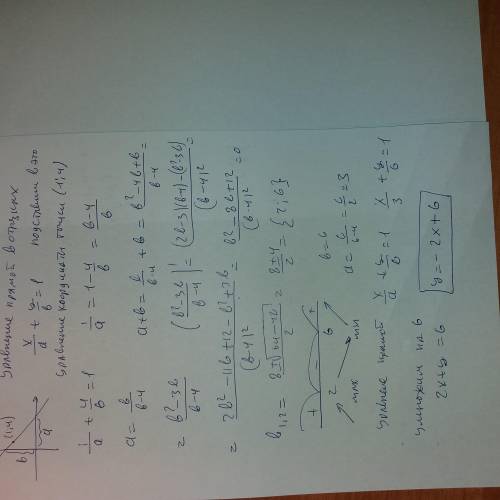 Уравнение прямой в отрезках
(1;4) b a
x/a + y/b = 1 подставим в это
уравнение координаты точки (1;4)
1/a + 4/b = 1 1/a = 1 - 4/b = (b-4)/b
a = b/(b-4) a+b = b/(b-4) + b = (b²-4b+b)/(b-4) =
= (b²-3b)/(b-4) ((b²-3b)/(b-4))' = ((2b-3)(b-4)-(b²-3b))/(b-4)² =
= (2b²-11b+12-b²+3b)/(b-4)² = (b²-8b+12)/(b-4)² = 0
b₁,₂ = (8±√(64-48))/2 = (8±4)/2 = {2;6}
+ - + b=6
2 6 a = b/(b-4) = 6/2 = 3
max min
уравнение прямой x/a + y/b = 1 x/3 + y/6 = 1
умножим на 6
2x+y=6 y=-2x+6